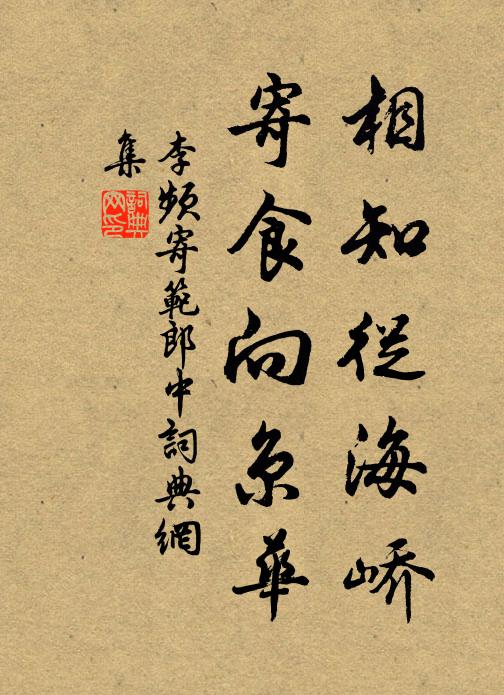 相知從海嶠
寄食向京華
李頻寄範郎中詞典網
集
詞典
网印